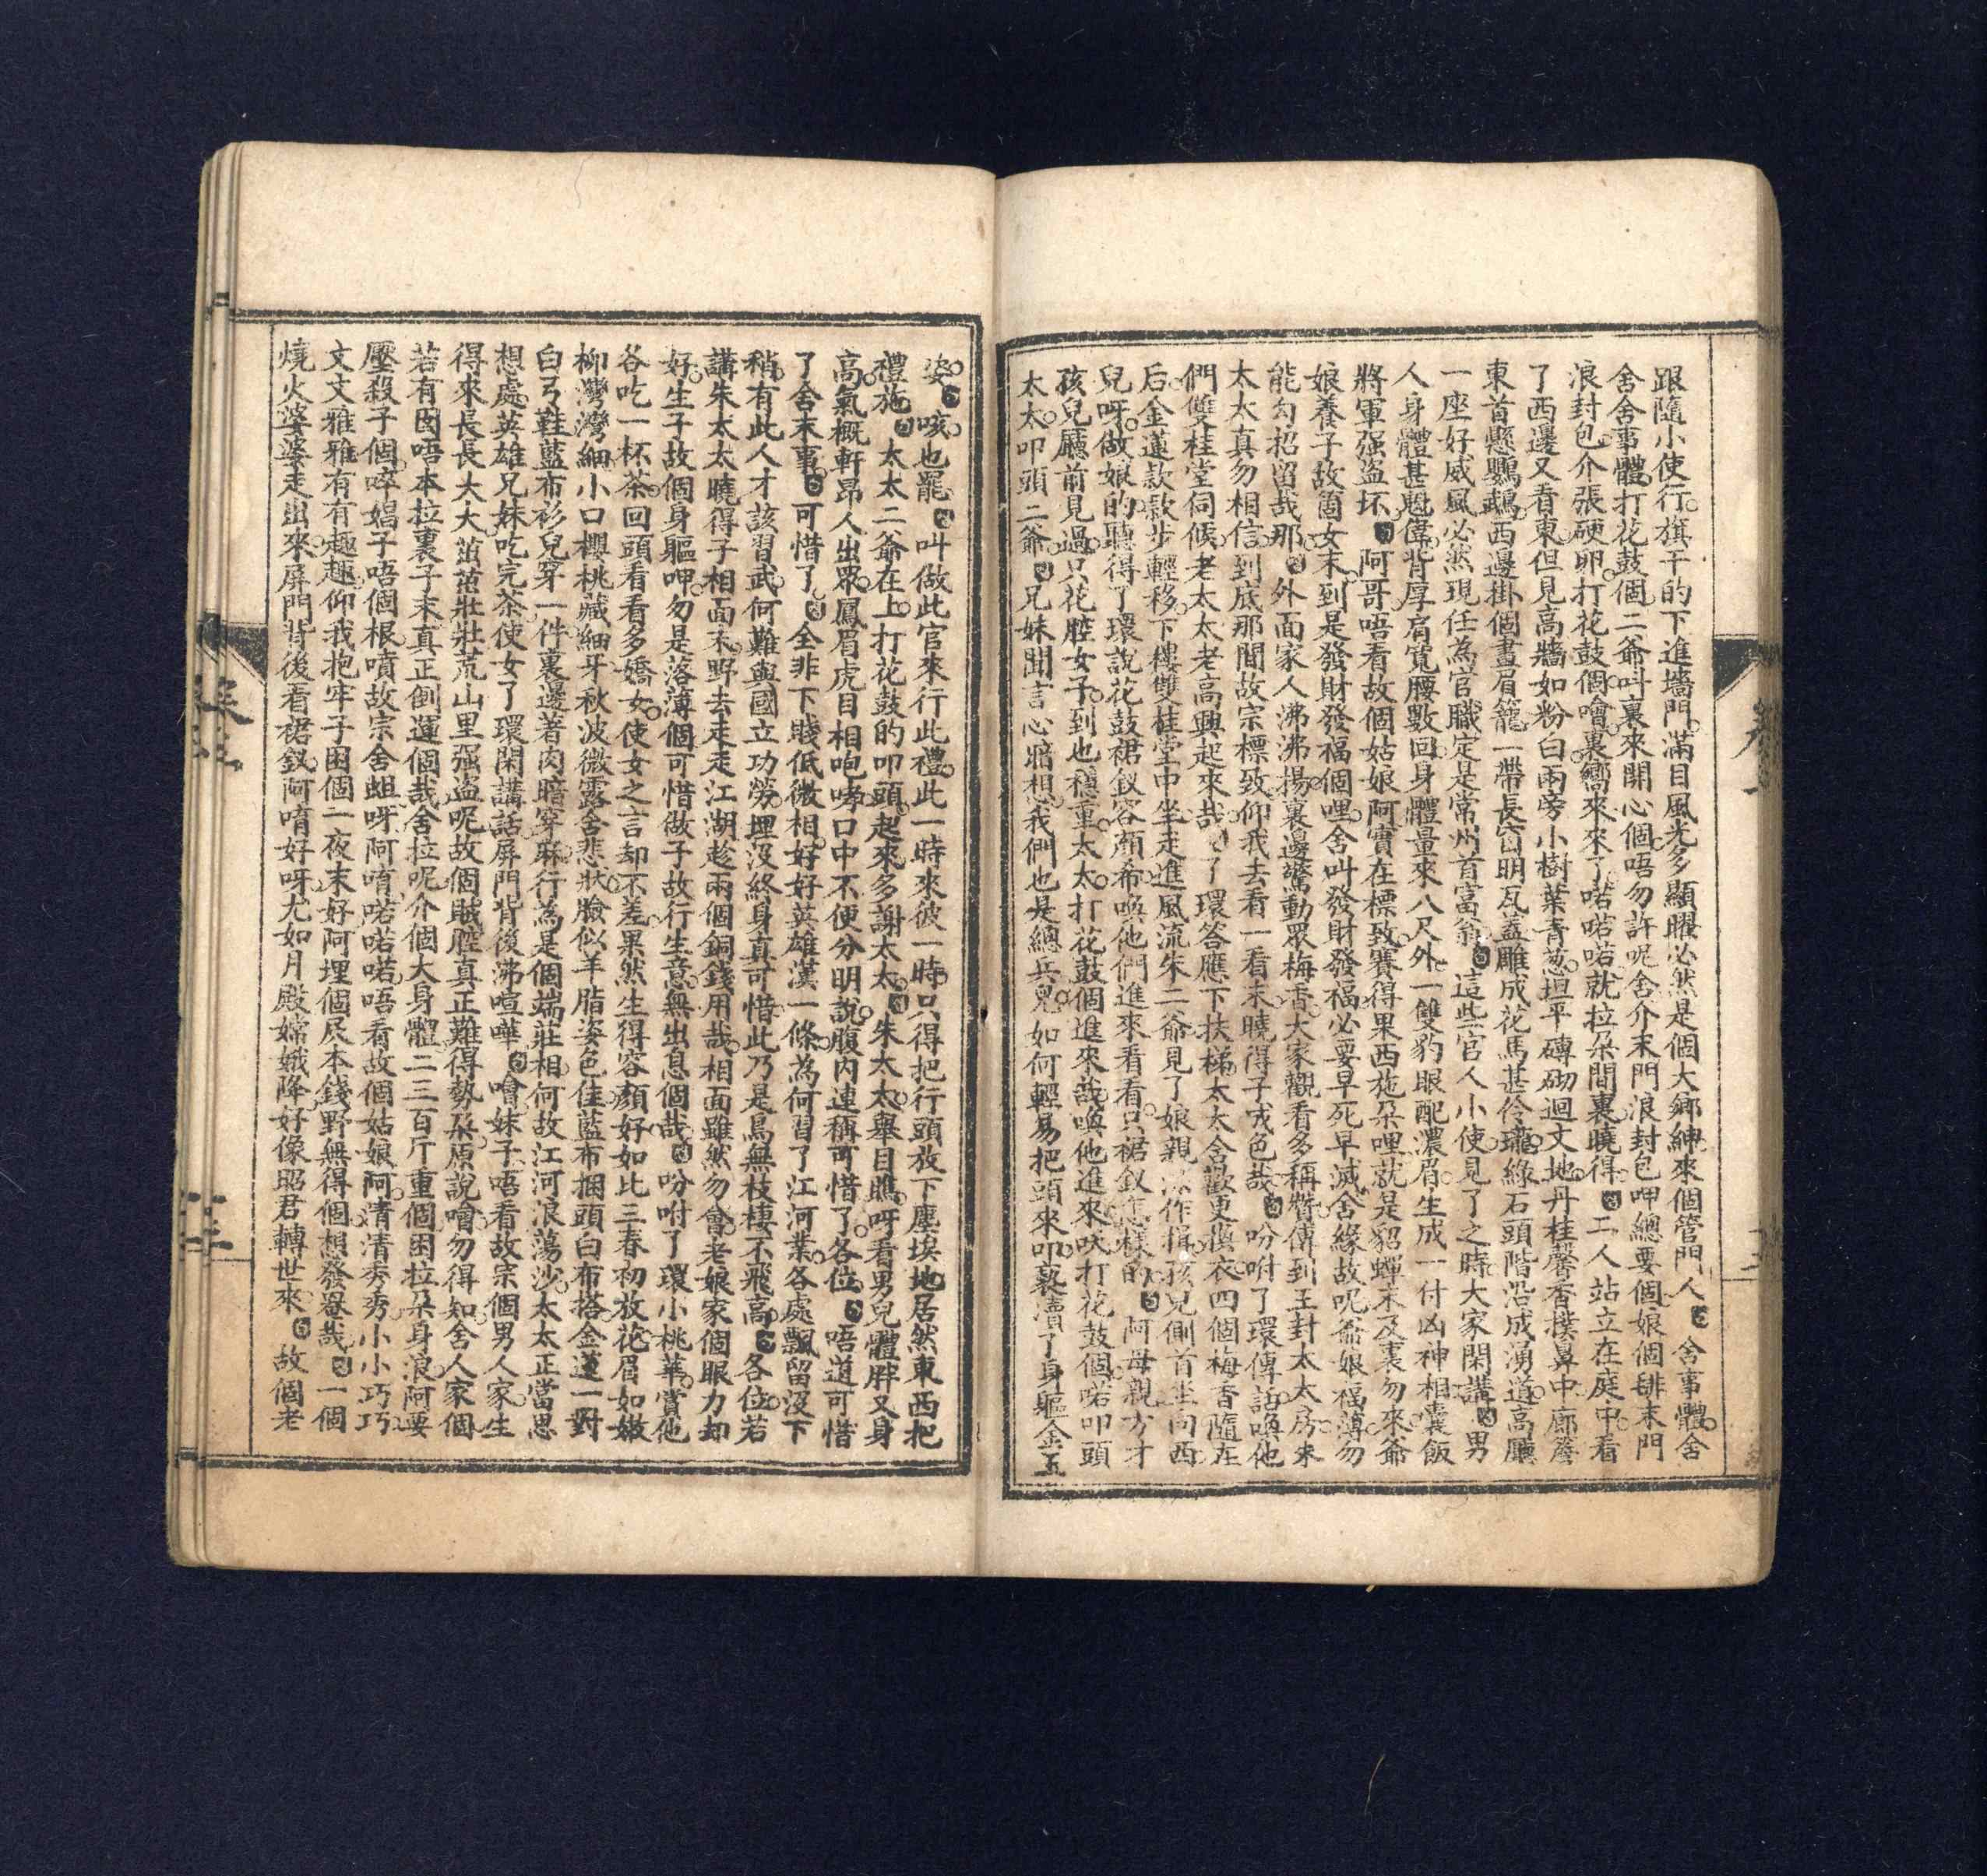 跟隨小使行旗干的下進墻門滿目風光多顯耀必然是個大鄉紳來個管門人 舍事體舍
舍舍事體打花鼓個二爺呌裏來開心個唔勿許呢舍介末門浪封包呷總要個娘個 末門
浪封包介張硬卵打花鼓個噲裏嚮來來了喏喏喏就拉朵間裏曉得 二人站立在庭中看
了西邊又看東但見高牆如粉白兩旁小樹葉青葱坦平磚砌迴文地丹桂馨香撲鼻中廊簷
東首懸鸚鵡西邊掛個畫眉籠一帶長窗明瓦蓋雕成花馬甚伶瓏綠石頭階沿成湧道高廳
一座好威風必然現任為官職定是常州首富翁 這些官人小使見了之時大家閑講 男
人身體甚魁偉背厚肩寬腰數回身體量來八尺外一雙豹眼配濃眉生成一付凶神相囊飯
將軍强盜坯 阿哥唔看故個姑娘阿實在標致賽得果西施朵哩就是貂蟬末及裏勿來爺
娘養子故箇女末到是發財發福個哩舍叫發財發福必要早死早滅舍緣故呢爺娘福薄勿
能勾招留哉那 外面家人沸沸揚裏邊驚動眾梅香大家觀看多稱讚傳到王封太太房來
太太真勿相信到底那間故宗標致仰我去看一看末曉得子戎色哉 吩咐了環傳話喚他
們雙桂堂伺候老太太老高興起來哉 了環答應下扶梯太太舍歡更換衣四個梅香隨在
后金蓮款款步輕移下樓雙桂堂中坐走進風流朱二爺見了娘親 作揖孩兒側首坐向西
兒呀做娘的聽得了環說花鼓裙釵容顏希喚他們進來看看只裙釵怎樣的 阿母親方才
孩兒廳前見過只花腔女子到也穩重太太打花鼓個進來哉喚他進來吠打花鼓個喏叩頭
太太叩頭二爺 兄妹聞言心暗想我們也是總兵兒如何輕易把頭來叩褻瀆了身軀金玉
姿 咳也罷 叫做此官來行此禮此一時來彼一時只得把行頭放下塵埃地居然東西把
禮施 太太二爺在上打花鼓的叩頭起來多謝太太 朱太太舉目瞧呀看男兒體胖又身
高氣概軒昂人出眾鳳眉虎目相咆哮口中不便分明說腹內連稱可惜了各位 唔道可惜
了舍末事 可惜了 全非下賤低微相好好英雄漢一條為何習了江河業各處飄留沒下
稍有此人才該習武何難與國立功勞埋沒終身真可惜此乃是鳥無枝棲不飛高 各位若
講朱太太曉得子相面末野去走走江湖趁兩個銅錢用哉相面雖然勿會老娘家個眼力却
好生子故個身軀呷勿是落薄個可惜做子故行生意無出息個哉 吩咐了環小桃華賞他
各吃一杯茶回頭看看多嬌女使女之言却不差果然生得容顏好如此三春初放花眉如嫩
柳灣灣細小口櫻桃藏細牙秋波微露含悲狀臉似羊脂姿色佳藍布捆頭白布搭金蓮一對
白弓鞋藍布衫兒穿一件裏邊著肉暗穿麻行為是個端莊相何故江河浪蕩沙太太正當思
想處英雄兄妹吃完茶使女了環閑講話屏門背後沸喧嘩 噲妹子唔看故宗個男人家生
得來長長大大茁茁壯壯荒山里强盜呢故個賊腔真正難得勢朵原說噲勿得知舍人家個
若有囡唔本拉裏子末真正倒運個哉舍拉呢介個大身體二三百斤重個困拉朵身浪阿要
壓殺子個啐娼子唔個根噴故宗舍蛆呀阿唷喏喏喏唔看故個姑娘阿清清秀秀小小巧巧
文文雅雅有有趣趣仰我抱牢子困個一夜末好阿埋個屄本錢野無得個想發昏哉 一個
燒火婆婆走出來屏門背後看裙釵阿唷好呀尤如月殿嫦娥降好像昭君轉世來 故個老